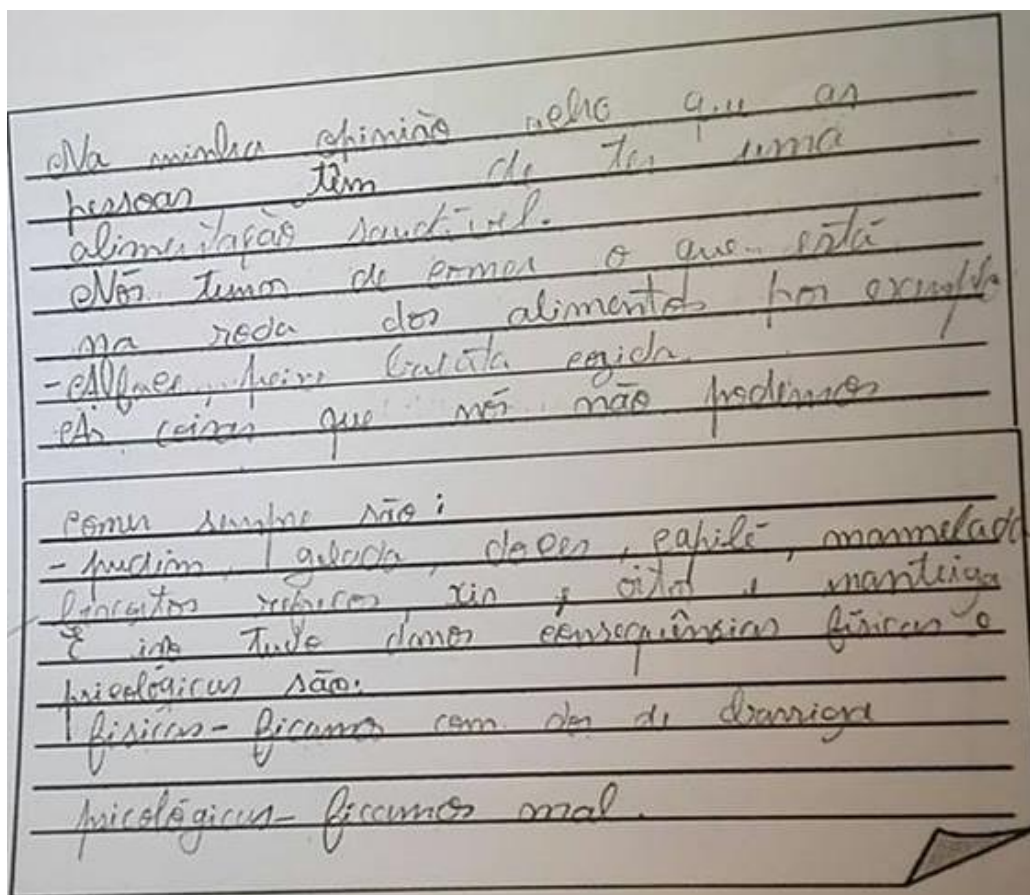 Na minha opinião acho que as
pessoas têm de ter uma
alimentação saudável.
Nós temos de comer o que está
na roda dos alimentos por exemplo
- Alface, peixe batata cozida.
As coisas que nós não podemos
comer sempre são:
- pudim, gelado, doces, capilé, marmelada
refrescos, e manteiga
E isto tudo danos consequênsias físicas e
psicológicas são:
físicas- ficamos com dor de barriga
psicológicas- ficamos mal.